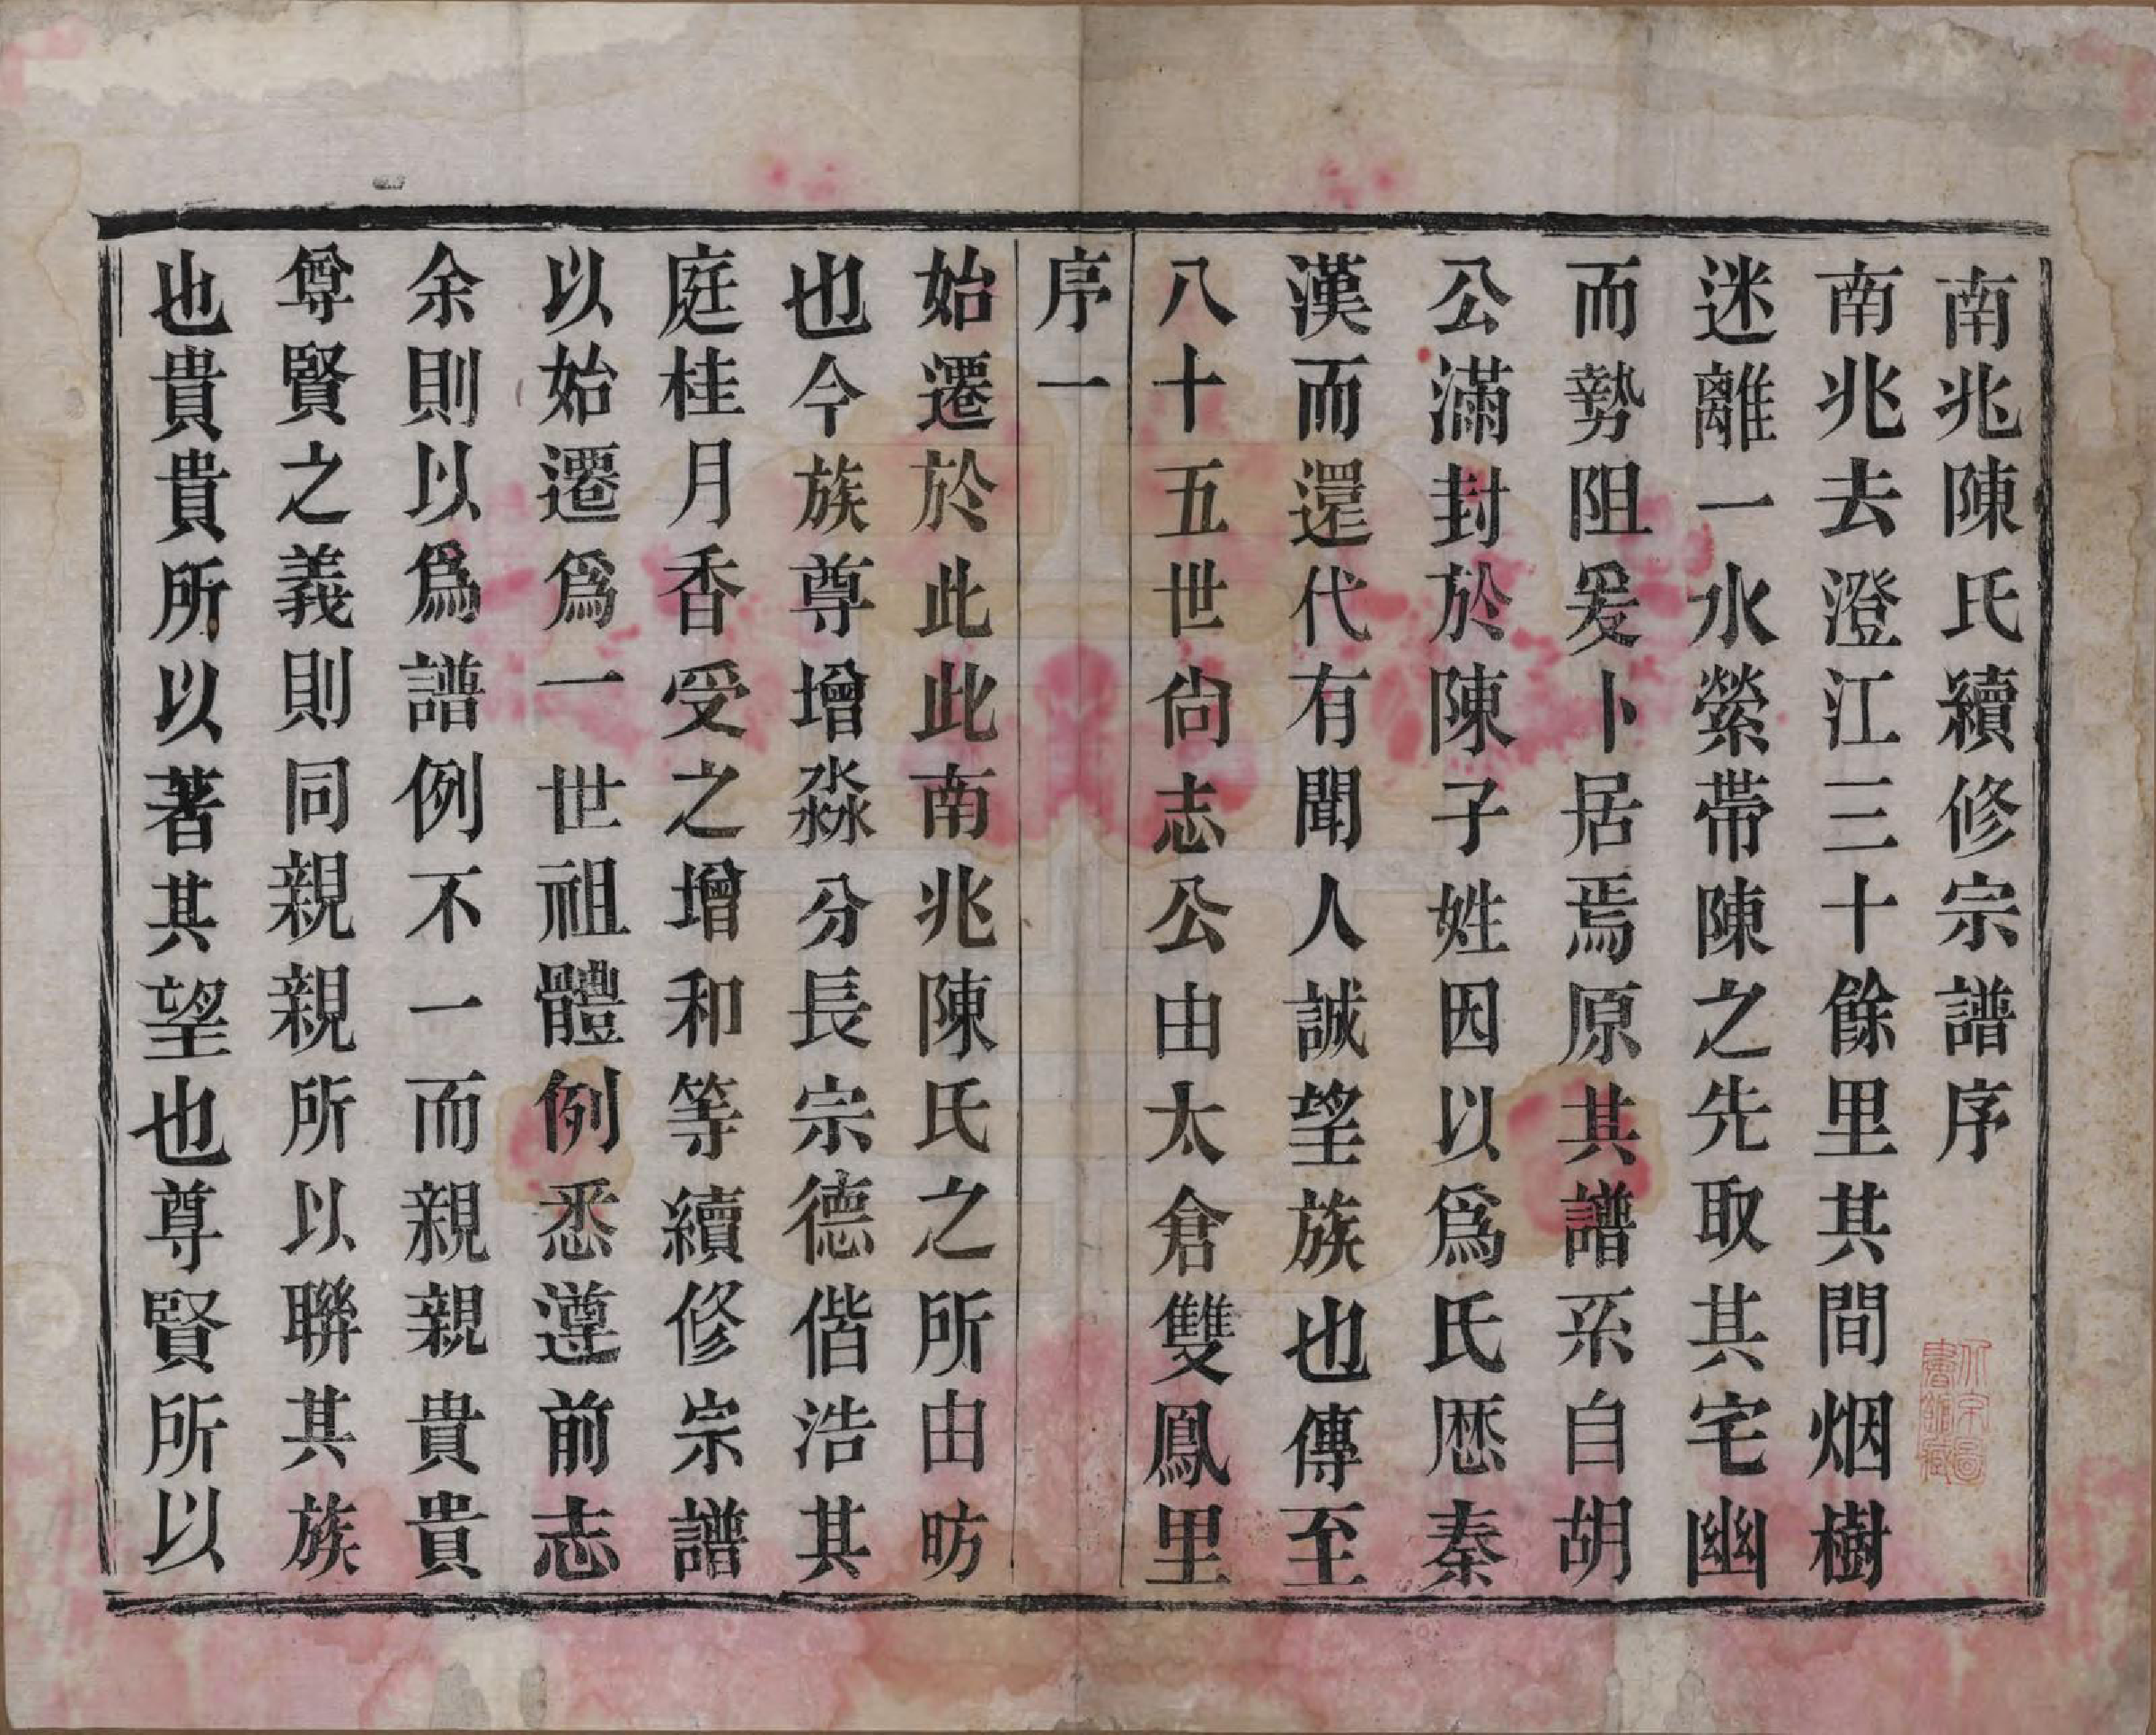 南兆陳氏續修宗譜序
南兆去澄江三十餘里其間烟樹
迷離一水縈帶陳之先取其宅幽
而勢阻爰卜居焉原其譜系自胡
公滿封於陳子姓因以爲氏歷秦
漢而還代有聞人誠望族也傳至
八十五世尙志公由太倉雙鳳里
序一
始遷於此此南兆陳氏之所由昉
也今族尊增淼分長宗德偕浩其
庭桂月香受之增和等續修宗譜
以始遷爲一世祖體例悉遵前志
余則以爲譜例不一而親親貴貴
尊賢之義則同親親所以聯其族
也貴貴所以著其望也尊賢所以